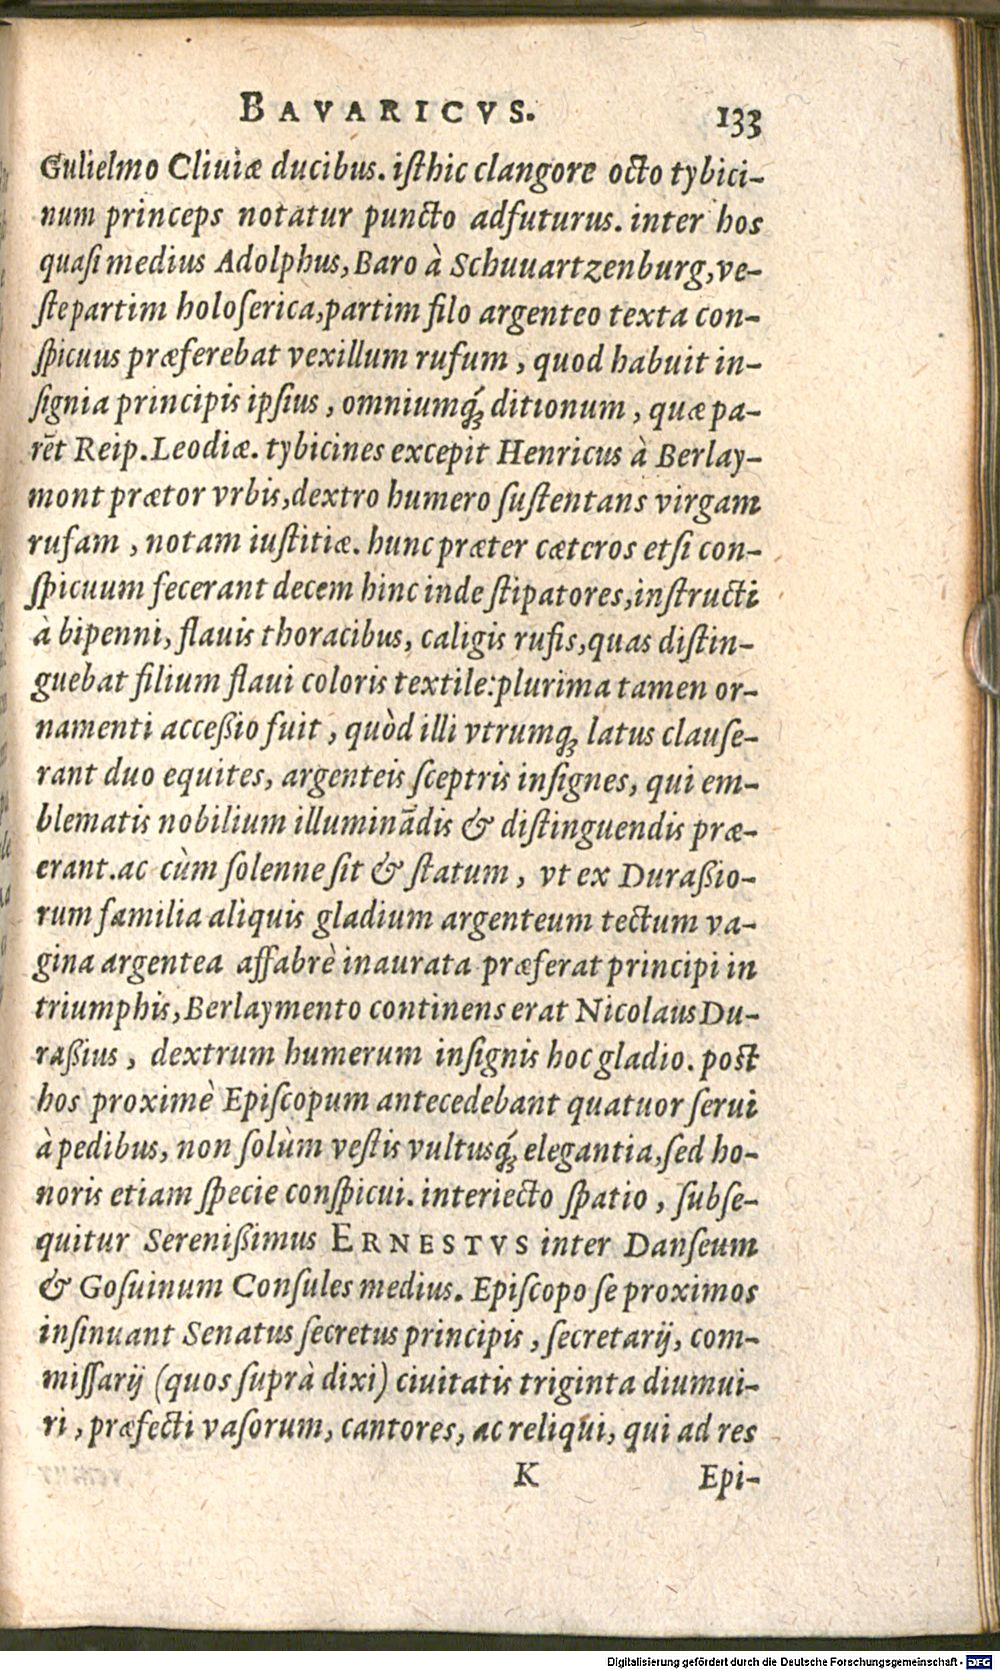 BAVARICVS. 133
Gulielmo Cliuiæ ducibus. iſthic clangore octo tybici-
num princeps notatur puncto adfuturus. inter hos
quaſi medius Adolphus, Baro à Schuuartzenburg, ve-
ſte partim holoſerica, partim filo argenteo texta con-
ſpicuus præferebat vexillum rufum, quod habuit in-
ſignia principis ipſius, omniumq́ꝫ ditionum, quæ pa-
rẽt Reip. Leodiæ. tybicines excepit Henricus à Berlay-
mont prætor vrbis, dextro humero ſuſtentans virgam
rufam, notam iuſtitiæ. hunc præter cæteros etſi con-
ſpicuum fecerant decem hinc inde ſtipatores, inſtructi
à bipenni, flauis thoracibus, caligis rufis, quas diſtin-
guebat filium flaui coloris textile: plurima tamen or-
namenti acceßio fuit, quòd illi vtrumqꝫ latus clauſe-
rant duo equites, argenteis ſceptris inſignes, qui em-
blematis nobilium illuminādis & diſtinguendis præ-
erant. ac cùm ſolenne ſit & ſtatum, vt ex Duraßio-
rum familia aliquis gladium argenteum tectum va-
gina argentea affabrè inaurata præferat principi in
triumphis, Berlaymento continens erat Nicolaus Du-
raßius, dextrum humerum inſignis hoc gladio. poſt
hos proximè Epiſcopum antecedebant quatuor ſerui
à pedibus, non ſolùm veſtis vultusq́ꝫ elegantia, ſed ho-
noris etiam ſpecie conſpicui. interiecto ſpatio, ſubſe-
quitur Sereniſsimus ERNESTVS inter Danſeum
& Goſuinum Conſules medius. Epiſcopo ſe proximos
inſinuant Senatus ſecretus principis, ſecretarij, com-
miſſarij (quos ſuprà dixi) ciuitatis triginta diumui-
ri, præfecti vaſorum, cantores, ac reliqui, qui ad res
K Epi-
Digitalisierung gefördert durch die Deutsche Forschungsgemeinschaft - DFG